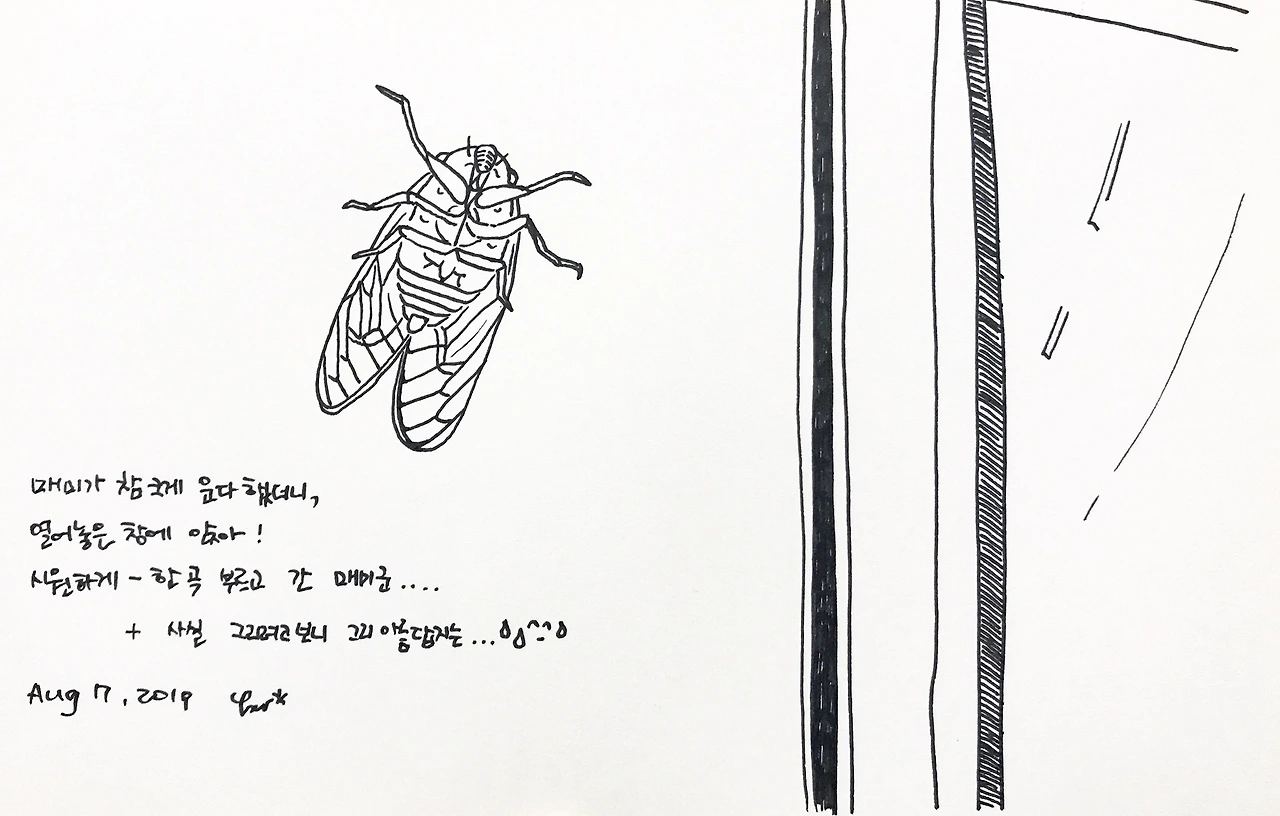 매미가 참 크게 운다 했더니,
열어놓은 창에 앉아!
시원하게 ~ 한 곡 부르고 간 매미군....
+ 사실 그리려고보니 그리 아름답지는...
Aug 7, 2019